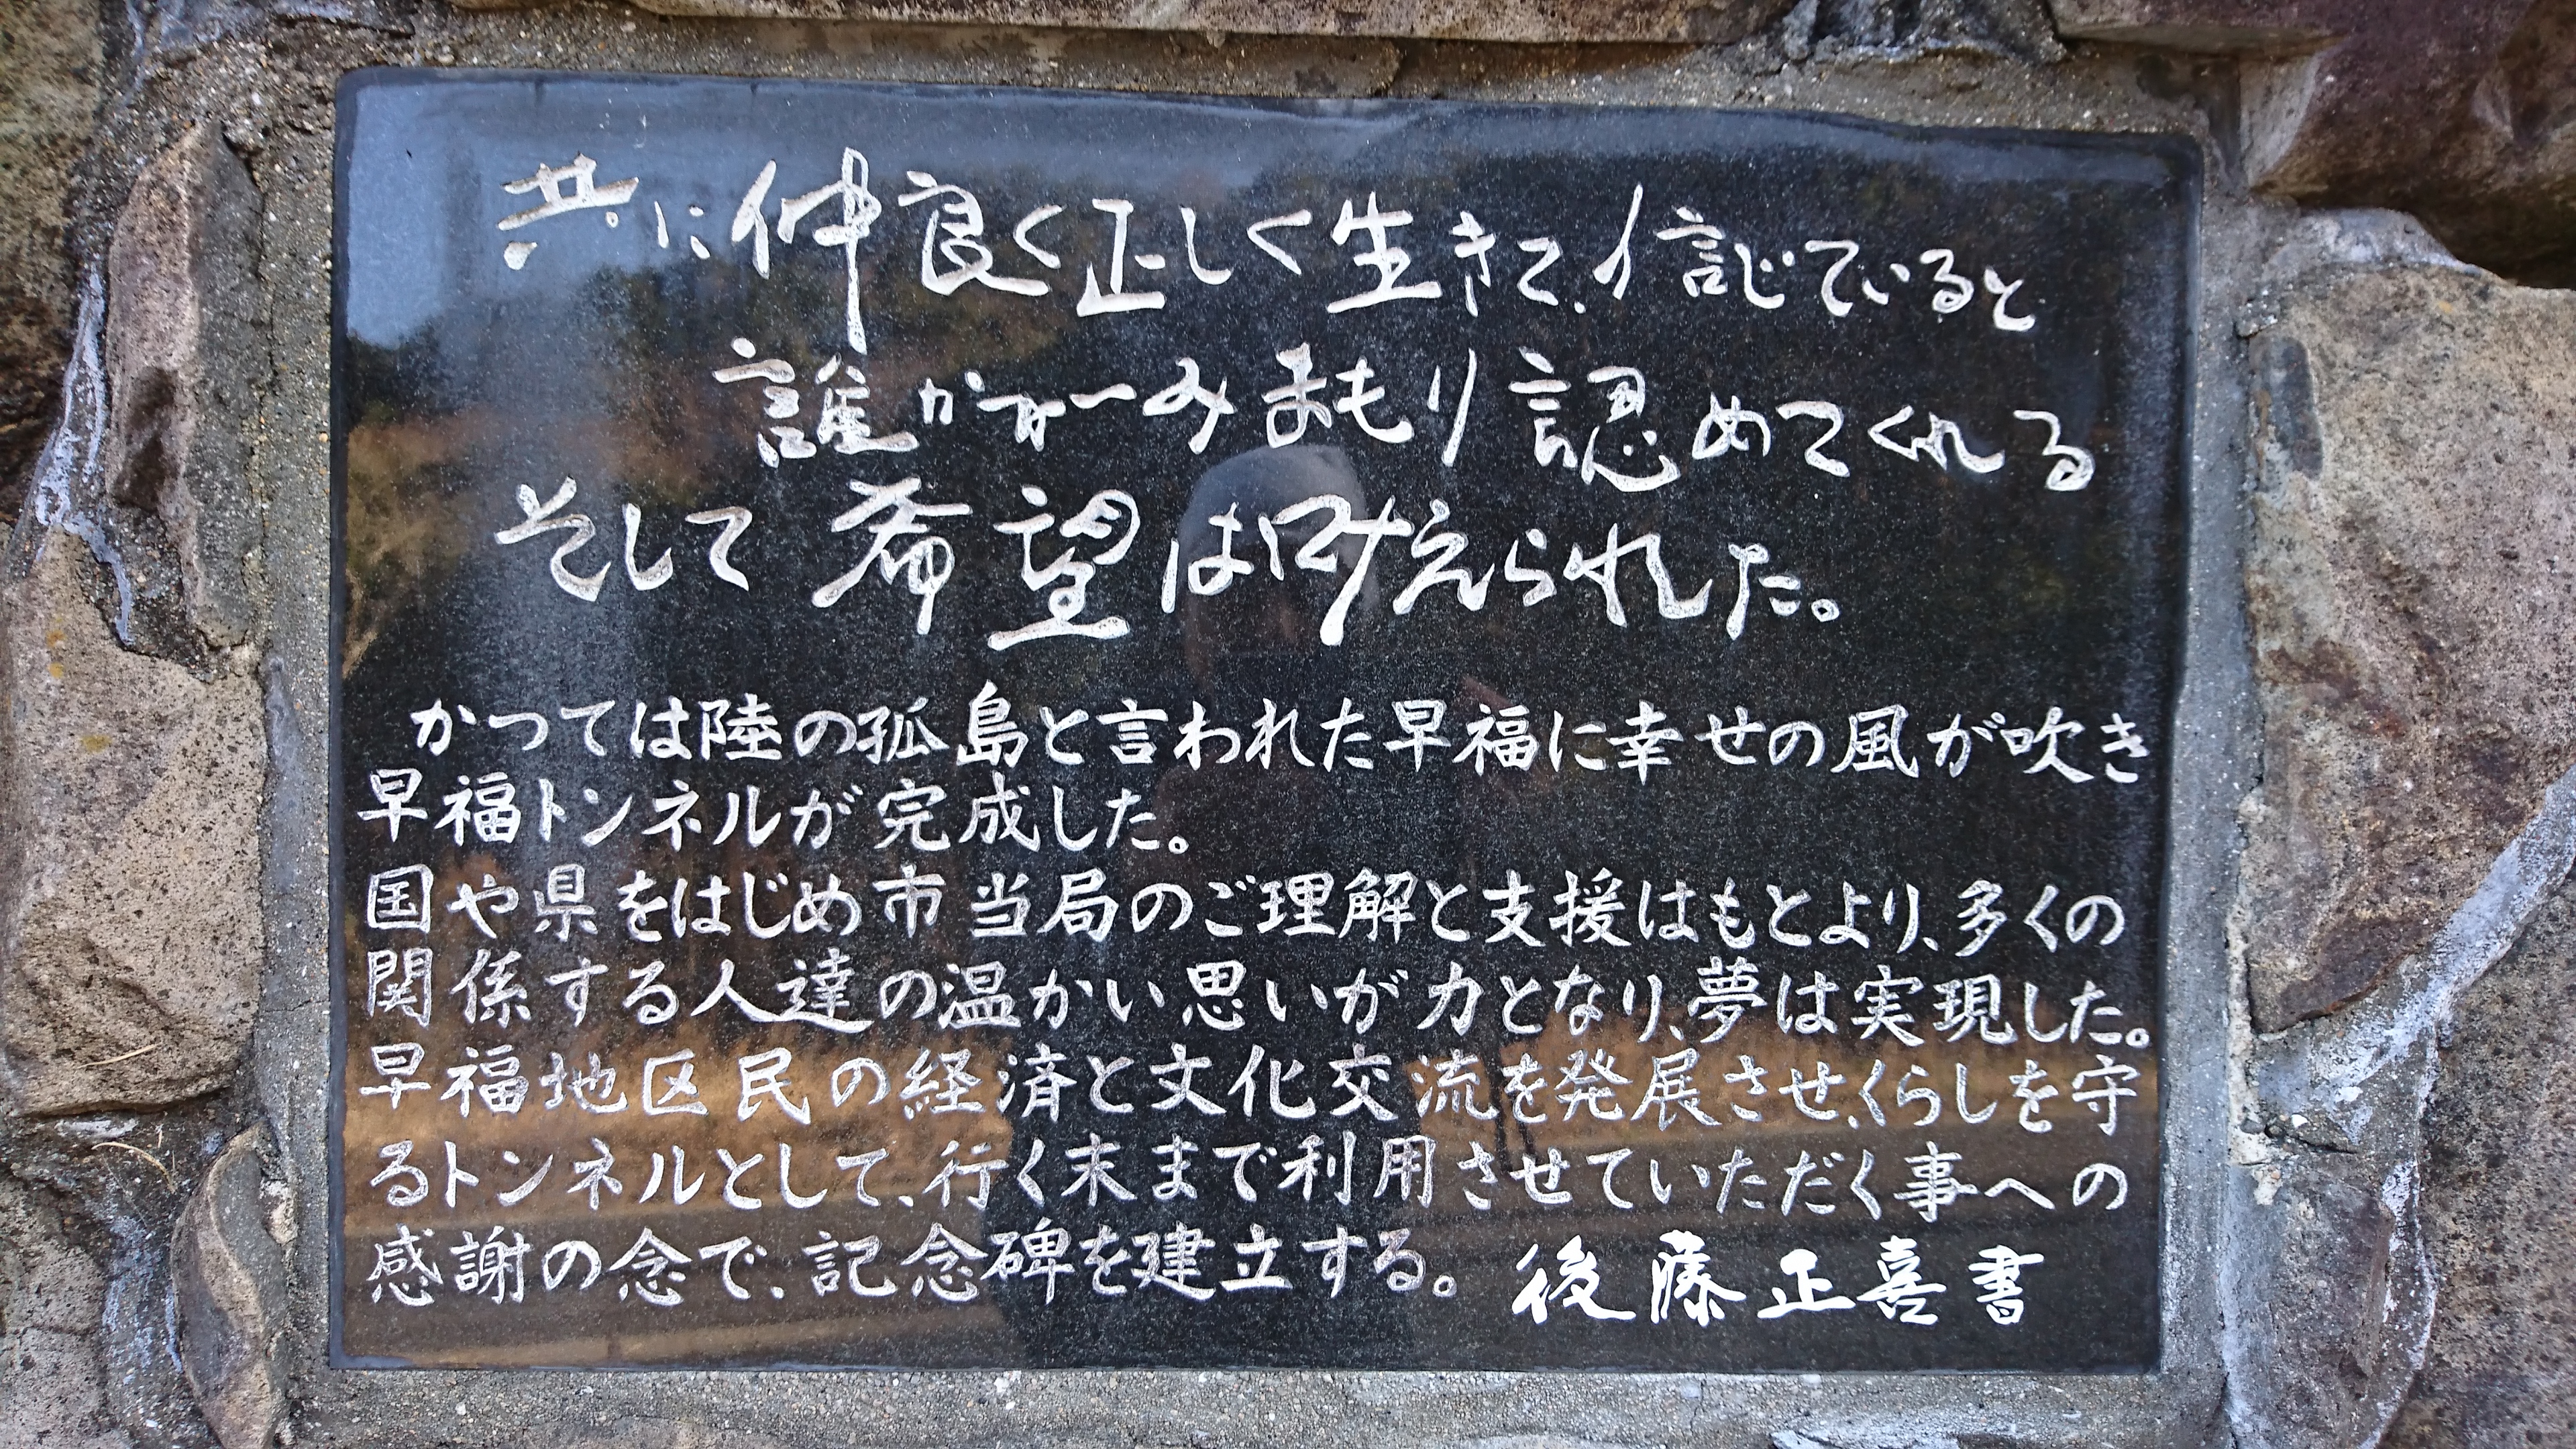 共に仲良く正しく生きて、信じていると
誰かがみまもり認めてくれる
そして希望は叶えられた。
かつては陸の孤島と言われた早福に幸せの風が吹き
早福トンネルが完成した。
国や県をはじめ市当局のご理解と支援はもとより、多くの
関係する人達の温かい思いが力となり、夢は実現した。
早福地区民の経済と文化交流を発展させ、くらしを守
るトンネルとして、行く末まで利用させていただく事への
感謝の念で、記念碑を建立する。 後藤正喜書